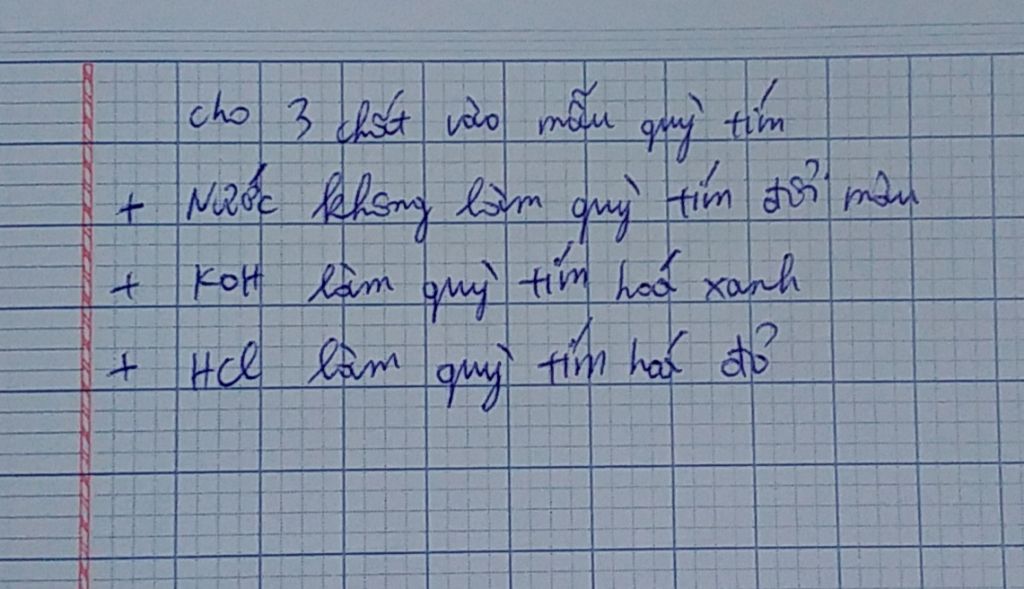 cho 3 chất vào mẫu quỳ tím
+ Nước không làm quỳ tím đổi màu
+ KOH làm quỳ tím hoá xanh
+ HCl làm quỳ tím hoá đỏ